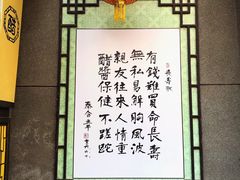 長壽歌
有錢難買命長壽
無私易解胸風波
親友往來人情重
醋醬保健不蹉跎
醋